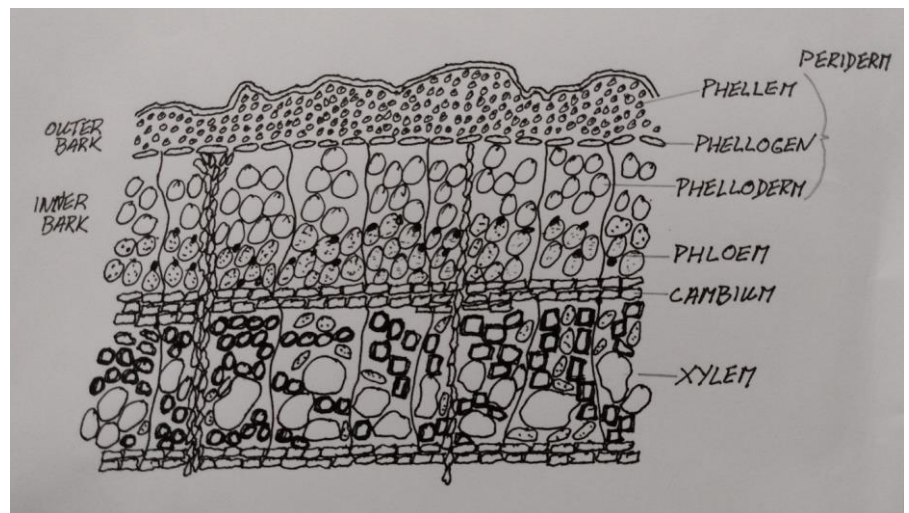 OUTER
BARK
INNER
BARK
PERIDERM
PHELLEM
PHELLOGEN
PHELLODERM
PHLOEM
CAMBIUM
XYLEM